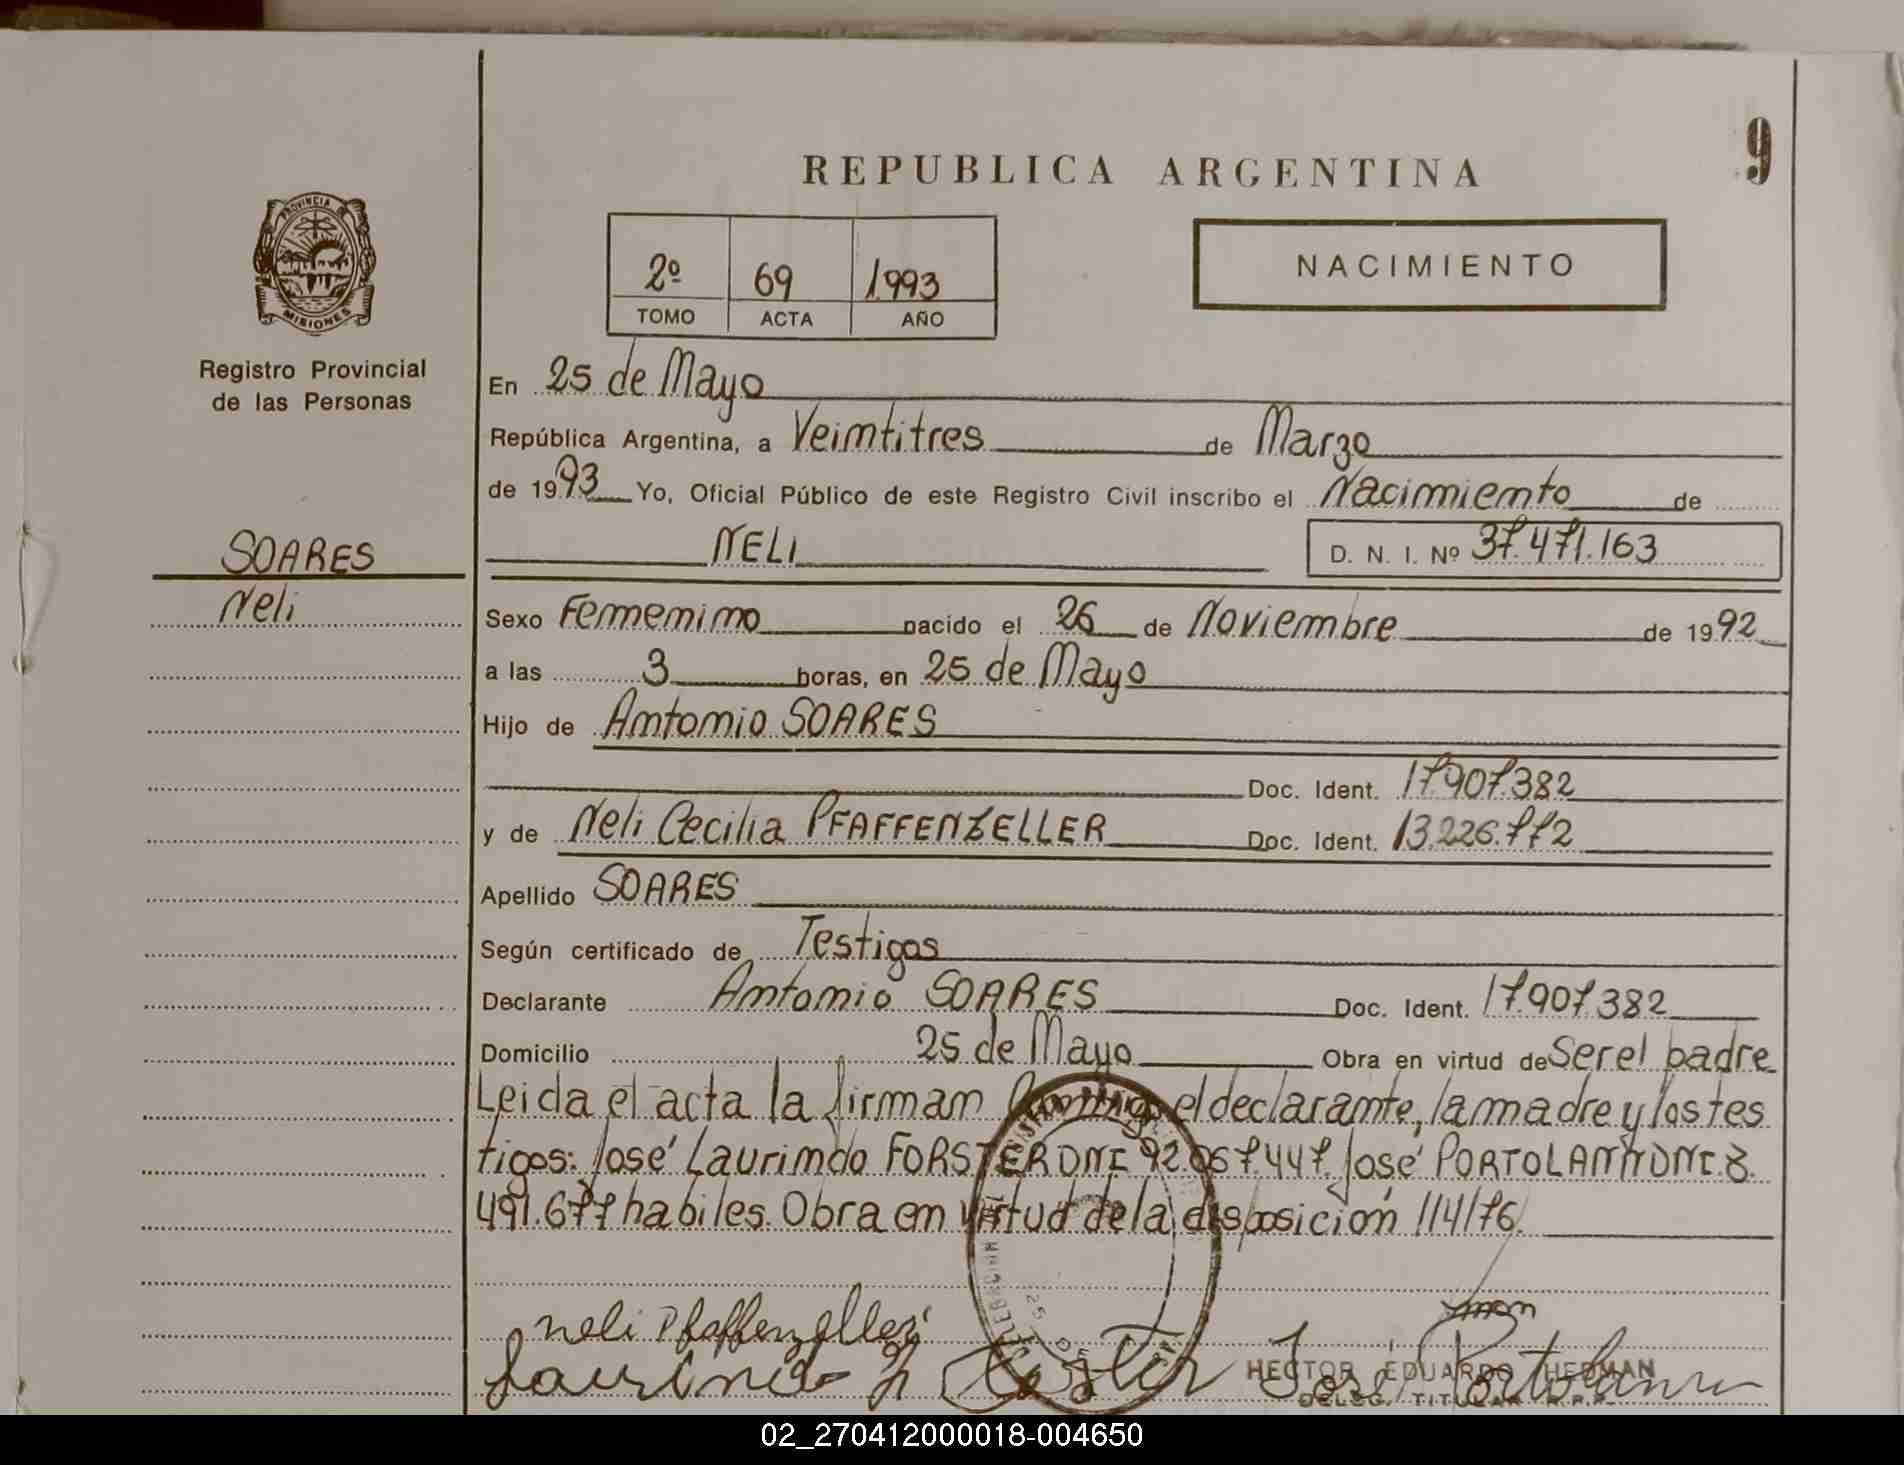 9
REPUBLICA ARGENTINA
PROVINCIA DE
MISIONES
2º 69 1993
TOMO ACTA AÑO
NACIMIENTO
Registro Provincial
de las Personas
En 25 de Mayo
República Argentina, a Veintitres de Marzo
de 1993 Yo, Oficial Público de este Registro Civil inscribo el Nacimiento de
SOARES
Neli
NELI D. N. I. Nº 37.471.163
Sexo Femenino nacido el 26 de Noviembre de 1992
a las 3 horas, en 25 de Mayo
Hijo de Antonio SOARES
Doc. Ident. 17.907.382
y de Neli Cecilia PFAFFENZELLER Doc. Ident. 13.226.772
Apellido SOARES
Según certificado de Testigos
Declarante Antonio SOARES Doc. Ident. 17.907.382
Domicilio 25 de Mayo Obra en virtud de Ser el padre
Leida el acta la firman conmigo el declarante, la madre y los tes
tigos: José Laurindo FORSTER DNI 92.057.447. José PORTOLANN DNI. 8.
491.677 habiles. Obra en virtud de la disposición 114/76.
Neli Pfaffenzeller
HECTOR EDUARDO HERMAN
DELEG. TITULAR R.P.P.
02_270412000018-004650